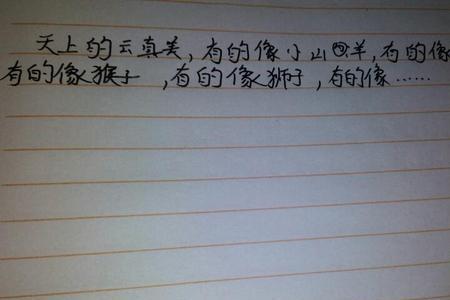 天上的云真美，有的像小山羊，有的像
有的像猴子，有的像狮子，有的像……